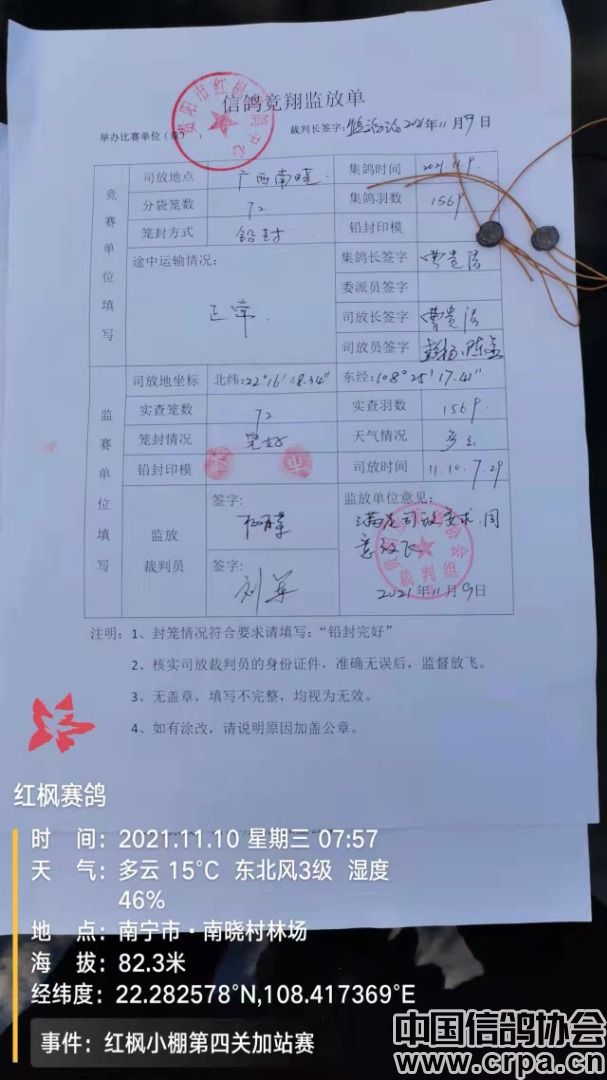 信鸽竞翔监放单
举办比赛单位（章）： 裁判长签字: 2021年11月9日
竞赛单位填写
司放地点 广西南晓 集鸽时间 2021.11.9.
分袋笼数 72 集鸽羽数 1569
笼封方式 铅封 铅封印模
途中运输情况： 正常. 集鸽长签字
委派员签字
司放长签字
司放员签字
监赛单位填写
司放地坐标 北纬:22°16′48.34″ 东经:108°25′17.41″
实查笼数 72 实查羽数 1569
笼封情况 完好 天气情况 多云
铅封印模 司放时间 11.10.7.29
监放裁判员
签字:
签字: 刘军
监放单位意见：
满足司放要求.同意放飞
裁判组
2021年11月9日
注明：1、封笼情况符合要求请填写：“铅封完好”
2、核实司放裁判员的身份证件，准确无误后，监督放飞。
3、无盖章，填写不完整，均视为无效。
4、如有涂改，请说明原因加盖公章。
红枫赛鸽
时 间: 2021.11.10 星期三 07:57
天 气: 多云 15°C 东北风3级 湿度
46%
地 点: 南宁市·南晓村林场
海 拔: 82.3米
经纬度: 22.282578°N,108.417369°E
事件: 红枫小棚第四关加站赛
中国信鸽协会
www.crpa.cn